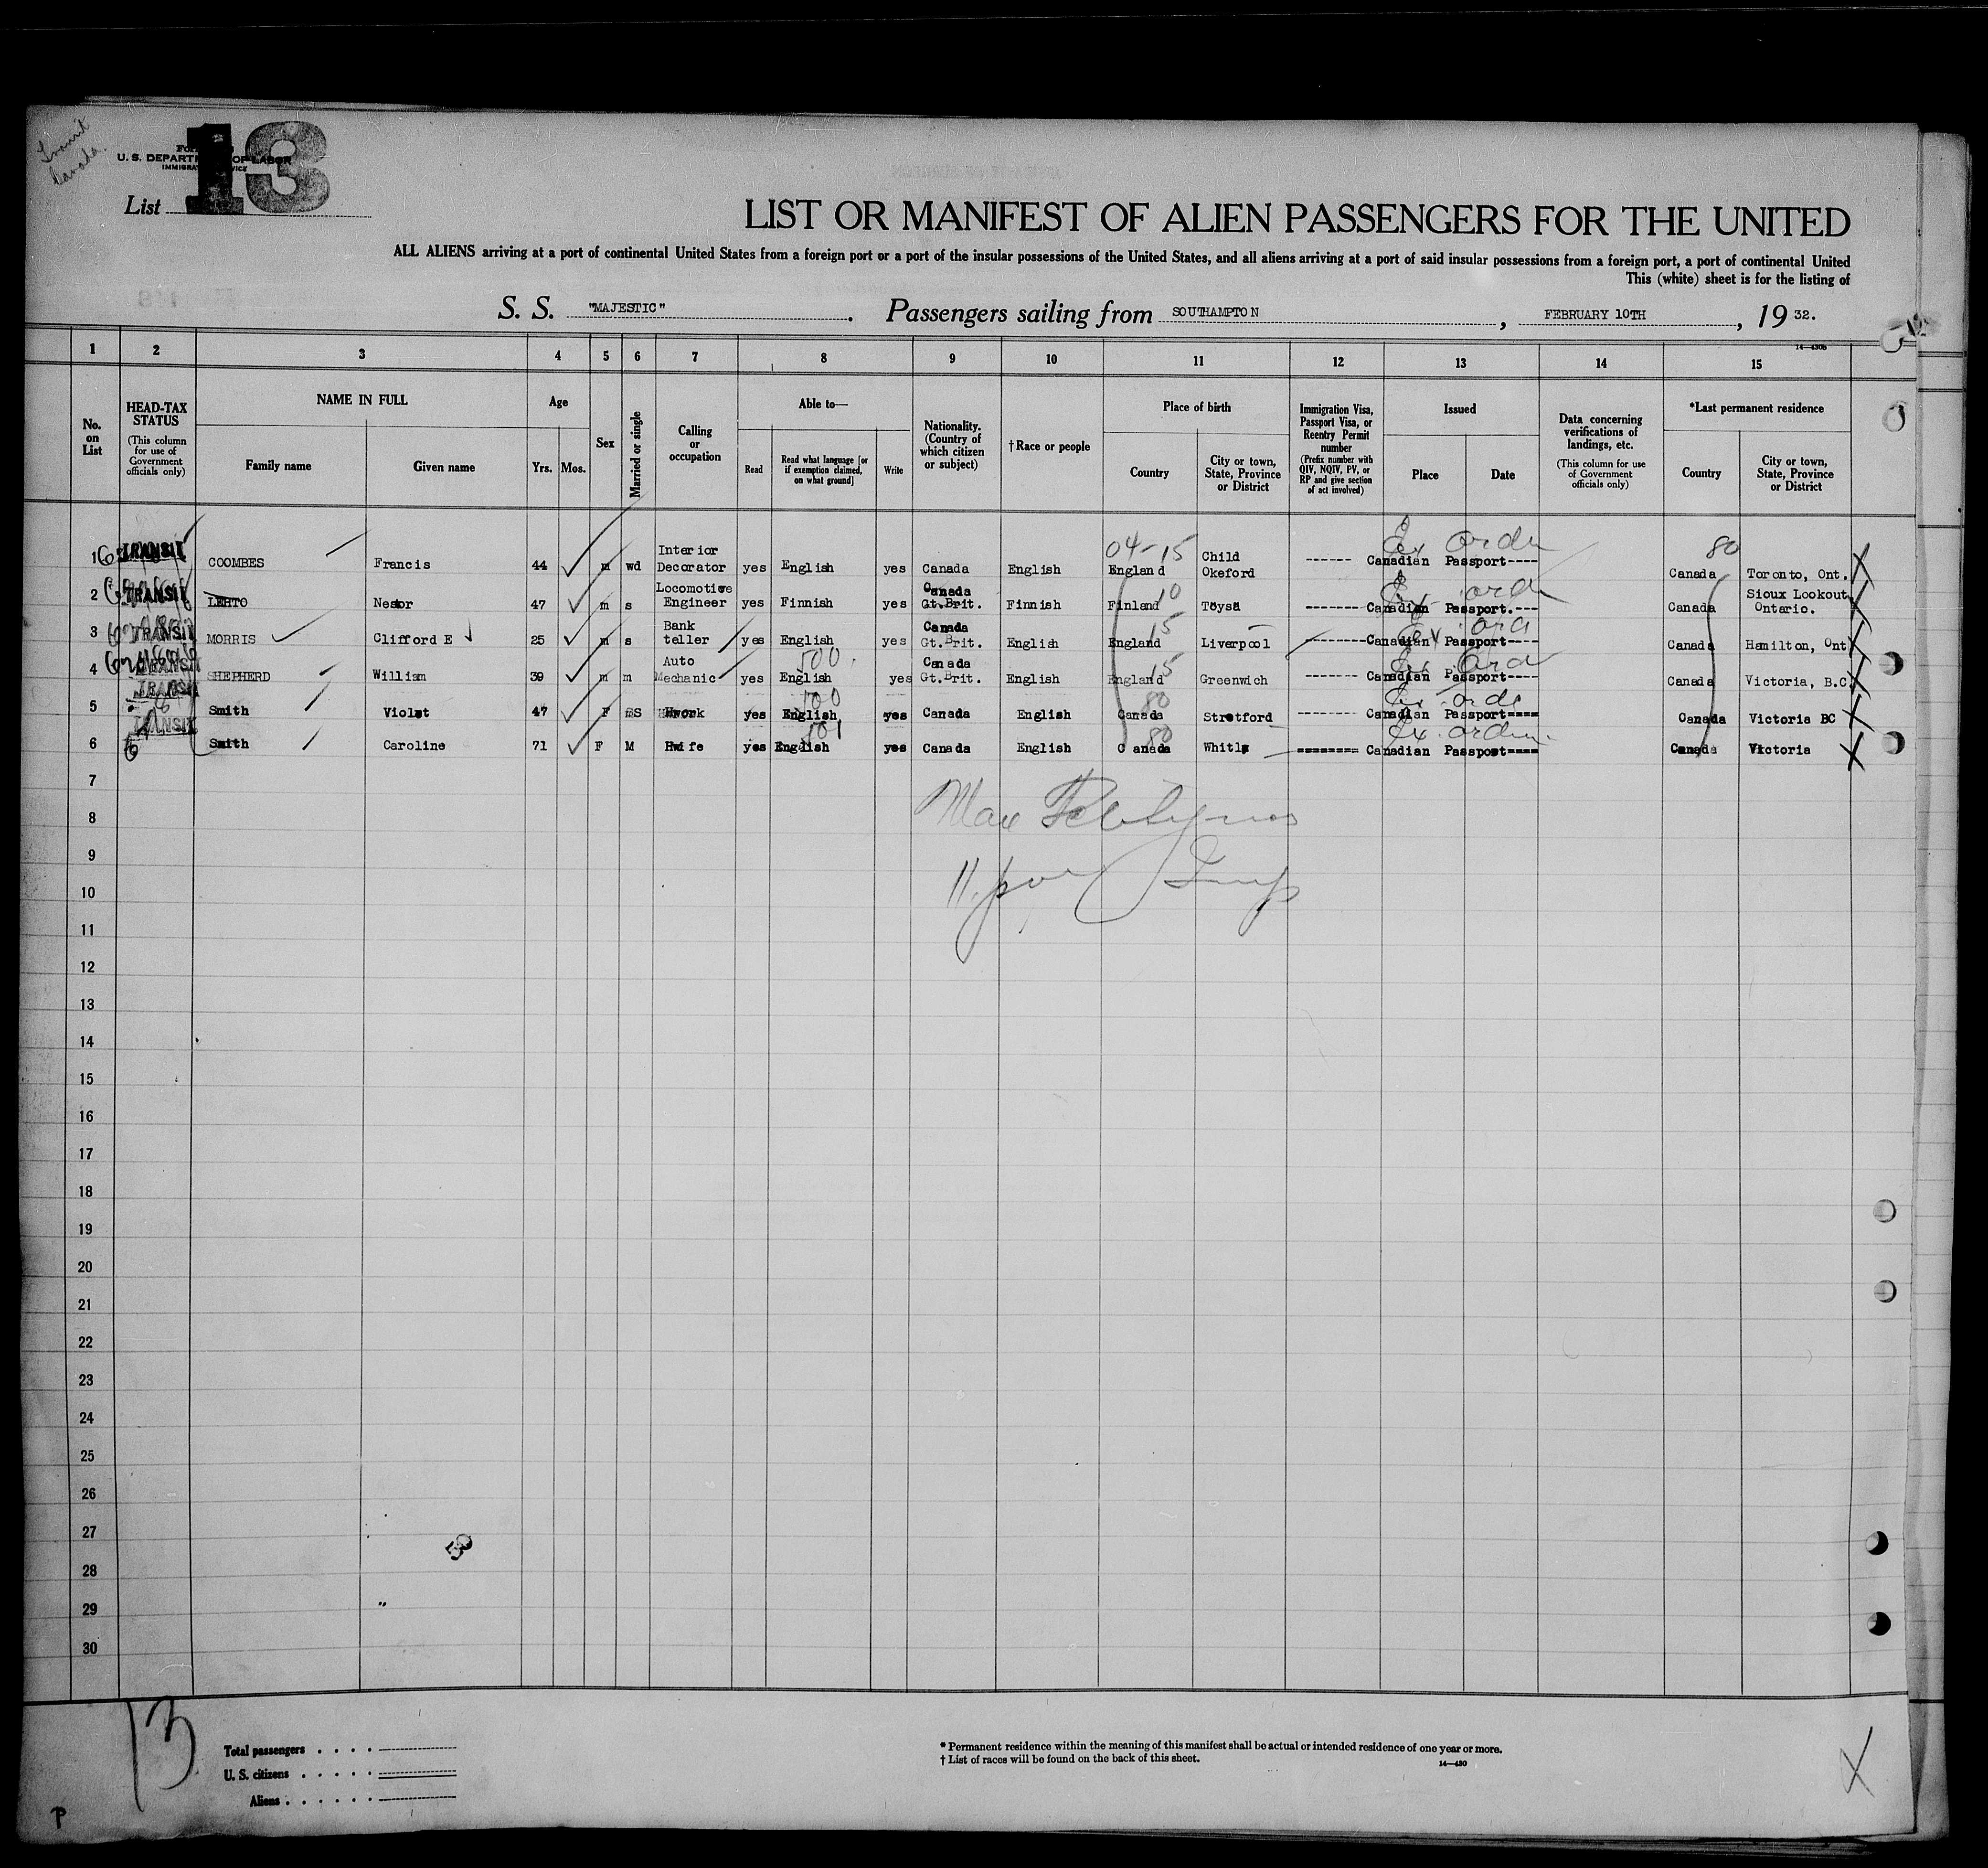 Transit
Canada.
13
U. S. DEPARTMENT OF LABOR
List
LIST OR MANIFEST OF ALIEN PASSENGERS FOR THE UNITED
ALL ALIENS arriving at a port of continental United States from a foreign port or a port of the insular possessions of the United States, and all aliens arriving at a port of said insular possessions from a foreign port, a port of continental United
This (white) sheet is for the listing of
S. S. "MAJESTIC". Passengers sailing from SOUTHAMPTON, FEBRUARY 10TH, 19 32.
14—430B
1 2 3 4 5 6 7 8 9 10 11 12 13 14 15
No. on List
HEAD-TAX STATUS (This column for use of Government officials only)
NAME IN FULL
Family name
Given name
Age
Yrs. Mos.
Sex
Married or single
Calling or occupation
Able to—
Read
Read what language [or if exemption claimed, on what ground]
Write
Nationality. (Country of which citizen or subject)
† Race or people
Place of birth
Country
City or town, State, Province or District
Immigration Visa, Passport Visa, or Reentry Permit number (Prefix number with QIV, NQIV, PV, or RP and give section of act involved)
Issued
Place
Date
Data concerning verifications of landings, etc. (This column for use of Government officials only)
*Last permanent residence
Country
City or town, State, Province or District
04-15 Ex orde 80
1 TRANSIT COOMBES Francis 44 m wd Interior Decorator yes English yes Canada English England Child Okeford ------ Canadian Passport---- Canada Toronto, Ont.
10 Ex orde
2 TRANSIT LEHTO Nestor 47 m s Locomotive Engineer yes Finnish yes Canada Gt.Brit. Finnish Finland Töysä ------- Canadian Passport.--- Canada Sioux Lookout Ontario.
15 Ex ord
3 TRANSIT MORRIS Clifford E 25 m s Bank teller yes English yes Canada Gt.Brit. English England Liverpool ------- Canadian Passport---- Canada Hamilton, Ont
500 15 Ex Ord
4 TRANSIT SHEPHERD William 39 m m Auto Mechanic yes English yes Canada Gt.Brit. English England Greenwich ------- Canadian Passport---- Canada Victoria, B.C.
100 80 Ex orde
5 TRANSIT Smith Violet 47 F S Hwork yes English yes Canada English Canada Stretford ------- Canadian Passport==== Canada Victoria BC
101 80 Ex orde
6 TRANSIT Smith Caroline 71 F M Hwife yes English yes Canada English Canada Whitla ======== Canadian Passpost==== Canada Victoria
7
8
9
10
11
12
13
14
15
16
17
18
19
20
21
22
23
24
25
26
27
28
29
30
13
Total passengers
U. S. citizens
Aliens
* Permanent residence within the meaning of this manifest shall be actual or intended residence of one year or more.
† List of races will be found on the back of this sheet.
14—430
P